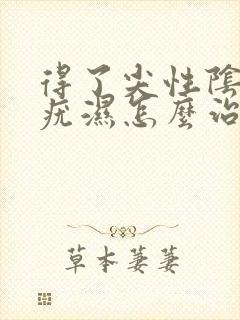 得了尖性陰
疣濕怎麼治
草本萋萋